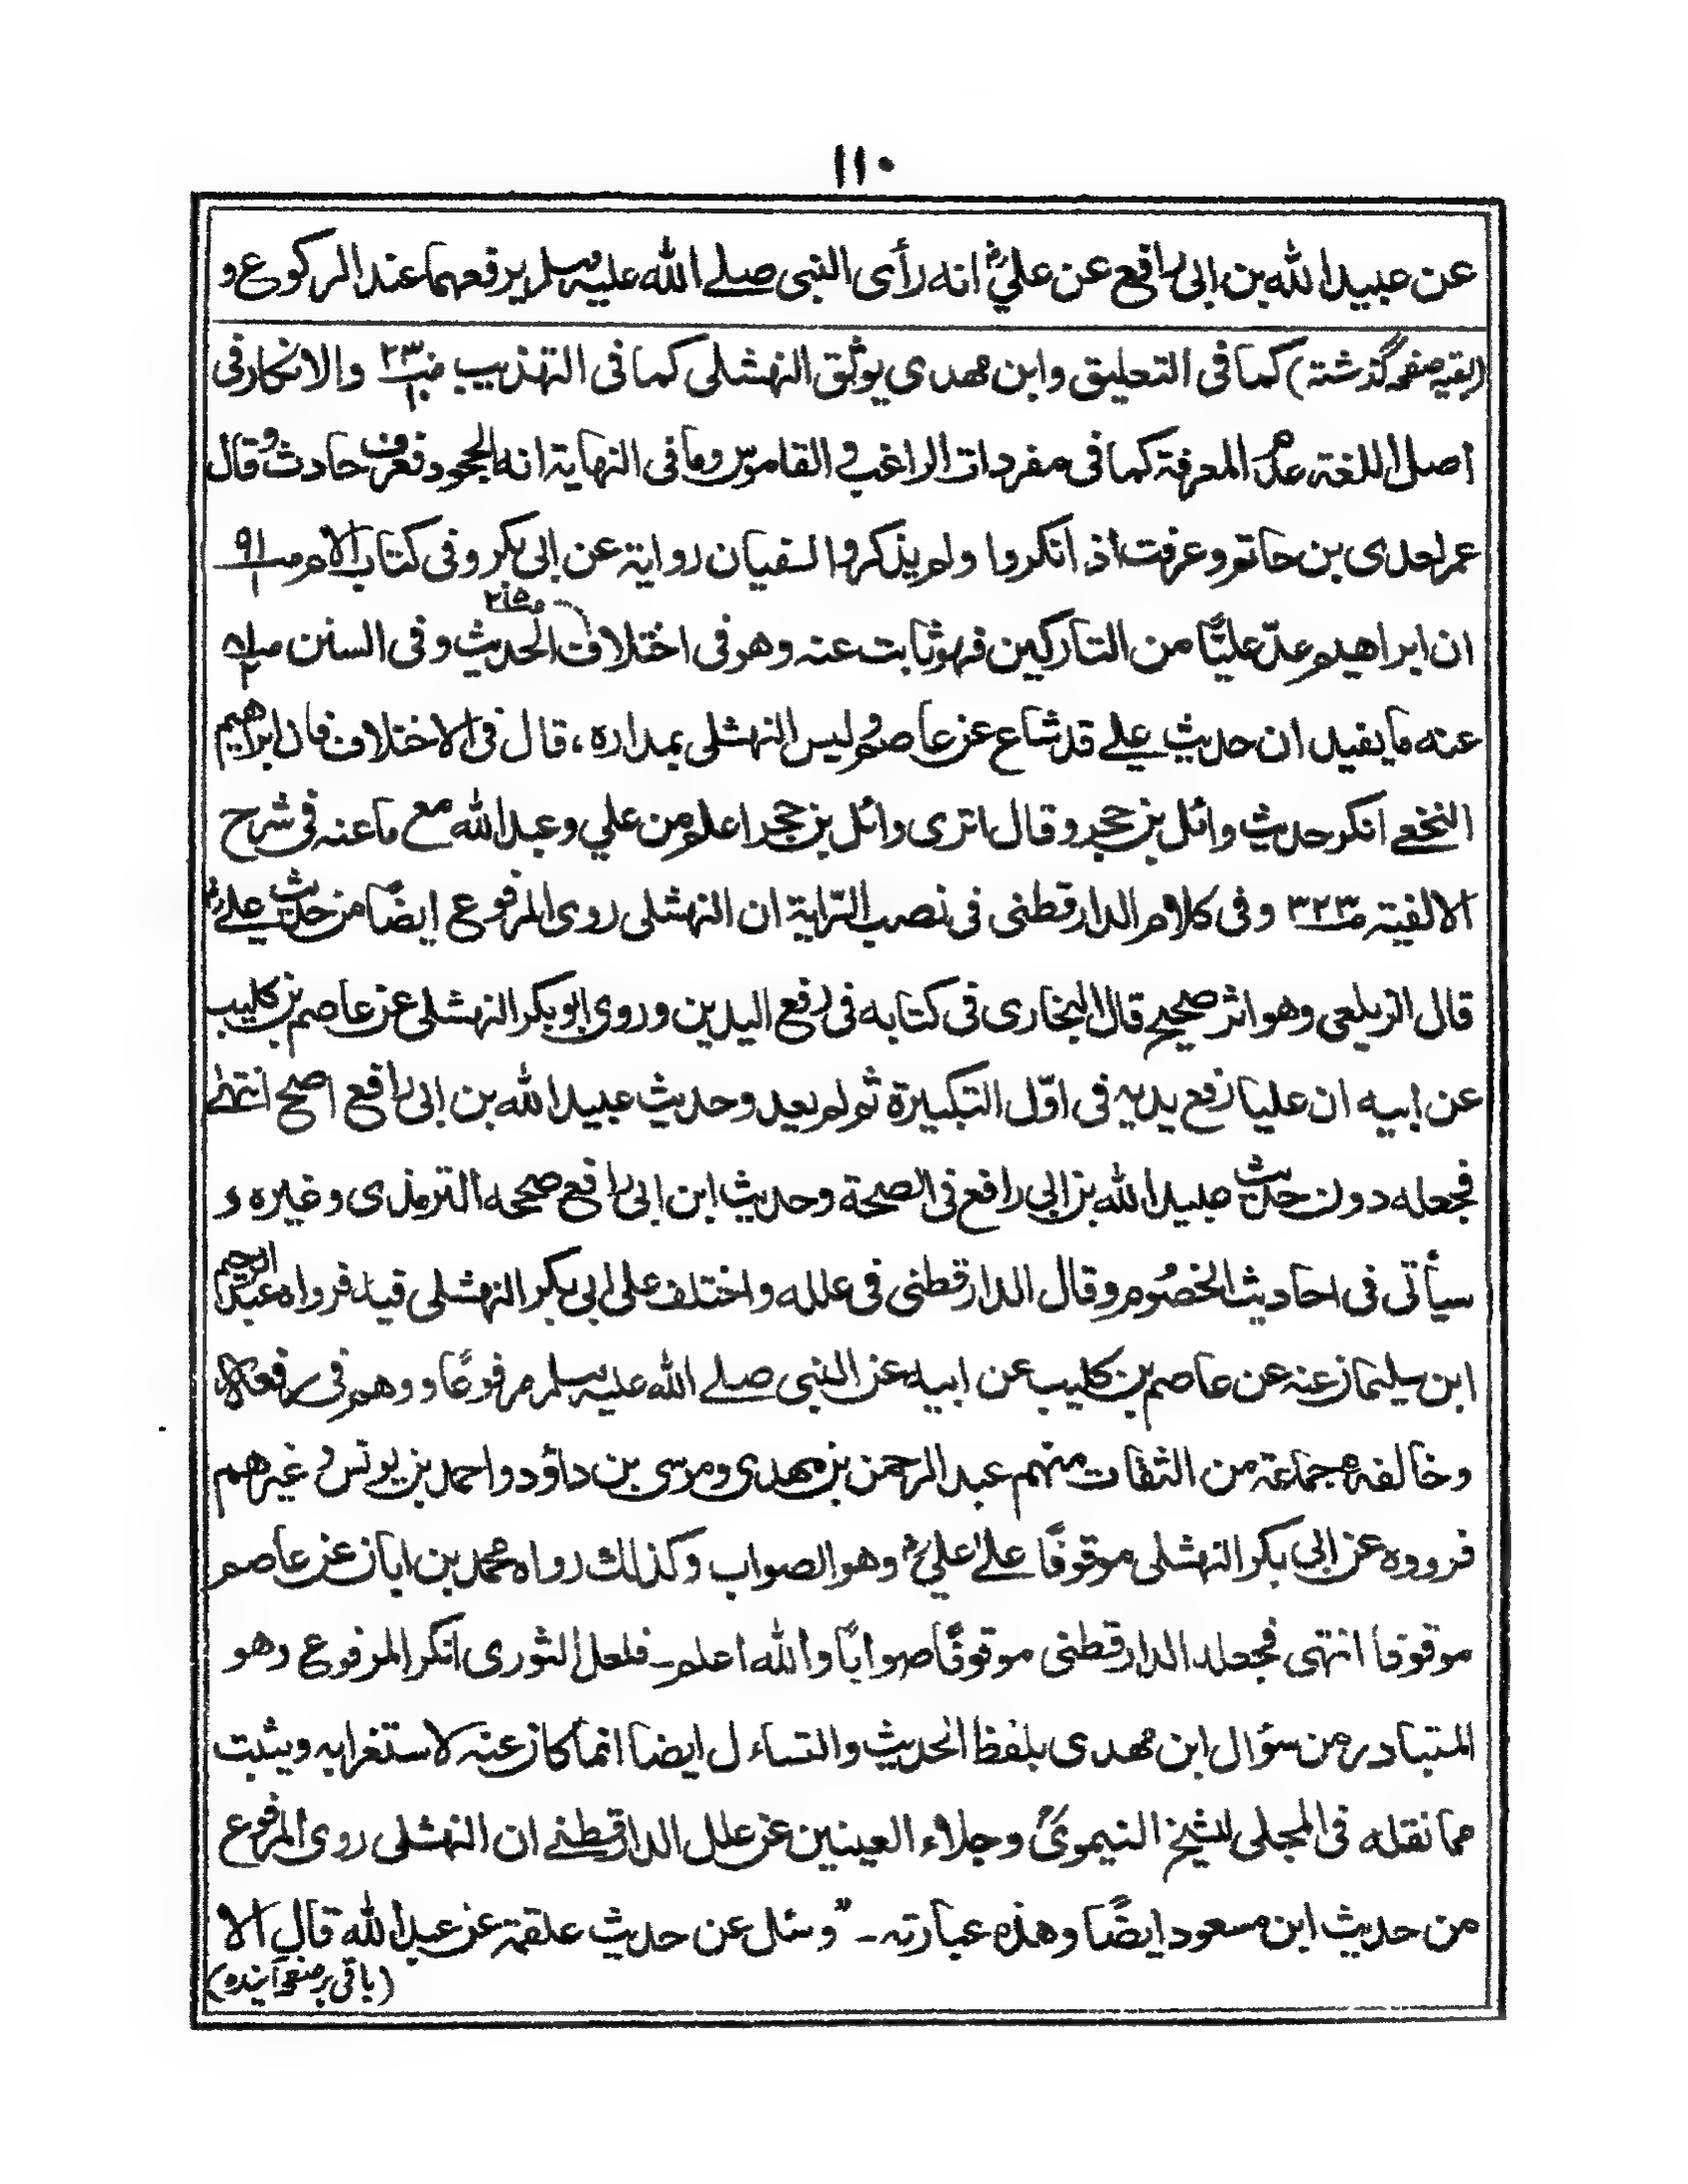 ۱۱۰
عن عبيد الله بن ابی رافع عن علیؓ انه رأى النبی صلے الله عليه وسلم يرفعهما عند الركوع و
(بقیہ صفحہ گذشتہ) كما فی التعليق وابن مهدی يوثق النهشلی كما فی التهذيب والانكار فی
اصل اللغة عدم المعرفة كما فی مفردات الراغب والقاموس وما فی النهاية انه الجحود فعرف حادث وقال
عمر لعدی بن حاتم وعرفت اذ انكروا ولم يذكروا لسفيان رواية عن ابی بكر وفی كتاب الام صـ ۹۱/۱
ان ابراهيم عدّ عليًّا من التاركين فهو ثابت عنه وهو فی اختلاف الحديث وفی السنن
عنه ما يفيد ان حديث علے قد شاع عن عاصم وليس النهشلی بمداره، قال فی الاختلاف فان ابراهيم
النخعے انكر حديث وائل بن حجر وقال اتری وائل بن حجر اعلم من علي وعبد الله مع ما عنه فی شرح
الالفية صـ ۳۲۳ وفی كلام الدارقطنی فی نصب الراية ان النهشلی روی المرفوع ايضًا من حديث علےؓ
قال الزيلعی وهو اثر صحيح قال البخاری فی كتابه فی رفع اليدين وروی ابو بكر النهشلی عن عاصم بن كليب
عن ابيه ان عليا رفع يديه فی اوّل التكبيرة ثم لم يعد وحديث عبيد الله بن ابی رافع اصح انتهٰے
فجعله دون حديث عبيد الله بن ابي رافع فی الصحة وحديث ابن ابی رافع صححه الترمذی وغيره و
سيأتی فی احاديث الخصوم وقال الدارقطنی فی علله واختلف علی ابی بكر النهشلی فيه فرواه عبد الرحيم
ابن سليمان عنه عن عاصم بن كليب عن ابيه عن النبی صلے الله عليه وسلم مرفوعًا ووهم فی رفعه
وخالفه جماعة من الثقات منهم عبد الرحمن بن مهدی وموسی بن داؤد واحمد بن يونس وغيرهم
فرووه عن ابی بكر النهشلی موقوفًا علےٰ عليؓ وهو الصواب وكذلك رواه محمد بن ابان عن عاصم
موقوفا انتهی فجعله الدارقطنی موقوفًا صوابًا والله اعلم۔ فلعل الثوری انكر المرفوع وهو
المتبادر من سؤال ابن مهدی بلفظ الحديث والتساءل ايضا انما كان عنه لاستغرابه ويثبت
مما نقله فی المجلی للشيخ النيمویؒ وجلاء العينين عن علل الدارقطنے ان النهشلی روی المرفوع
من حديث ابن مسعود ايضًا وهذه عبارته۔ "وسئل عن حديث علقمة عن عبد الله قال الا
(باقی بر صفحہ آیندہ)